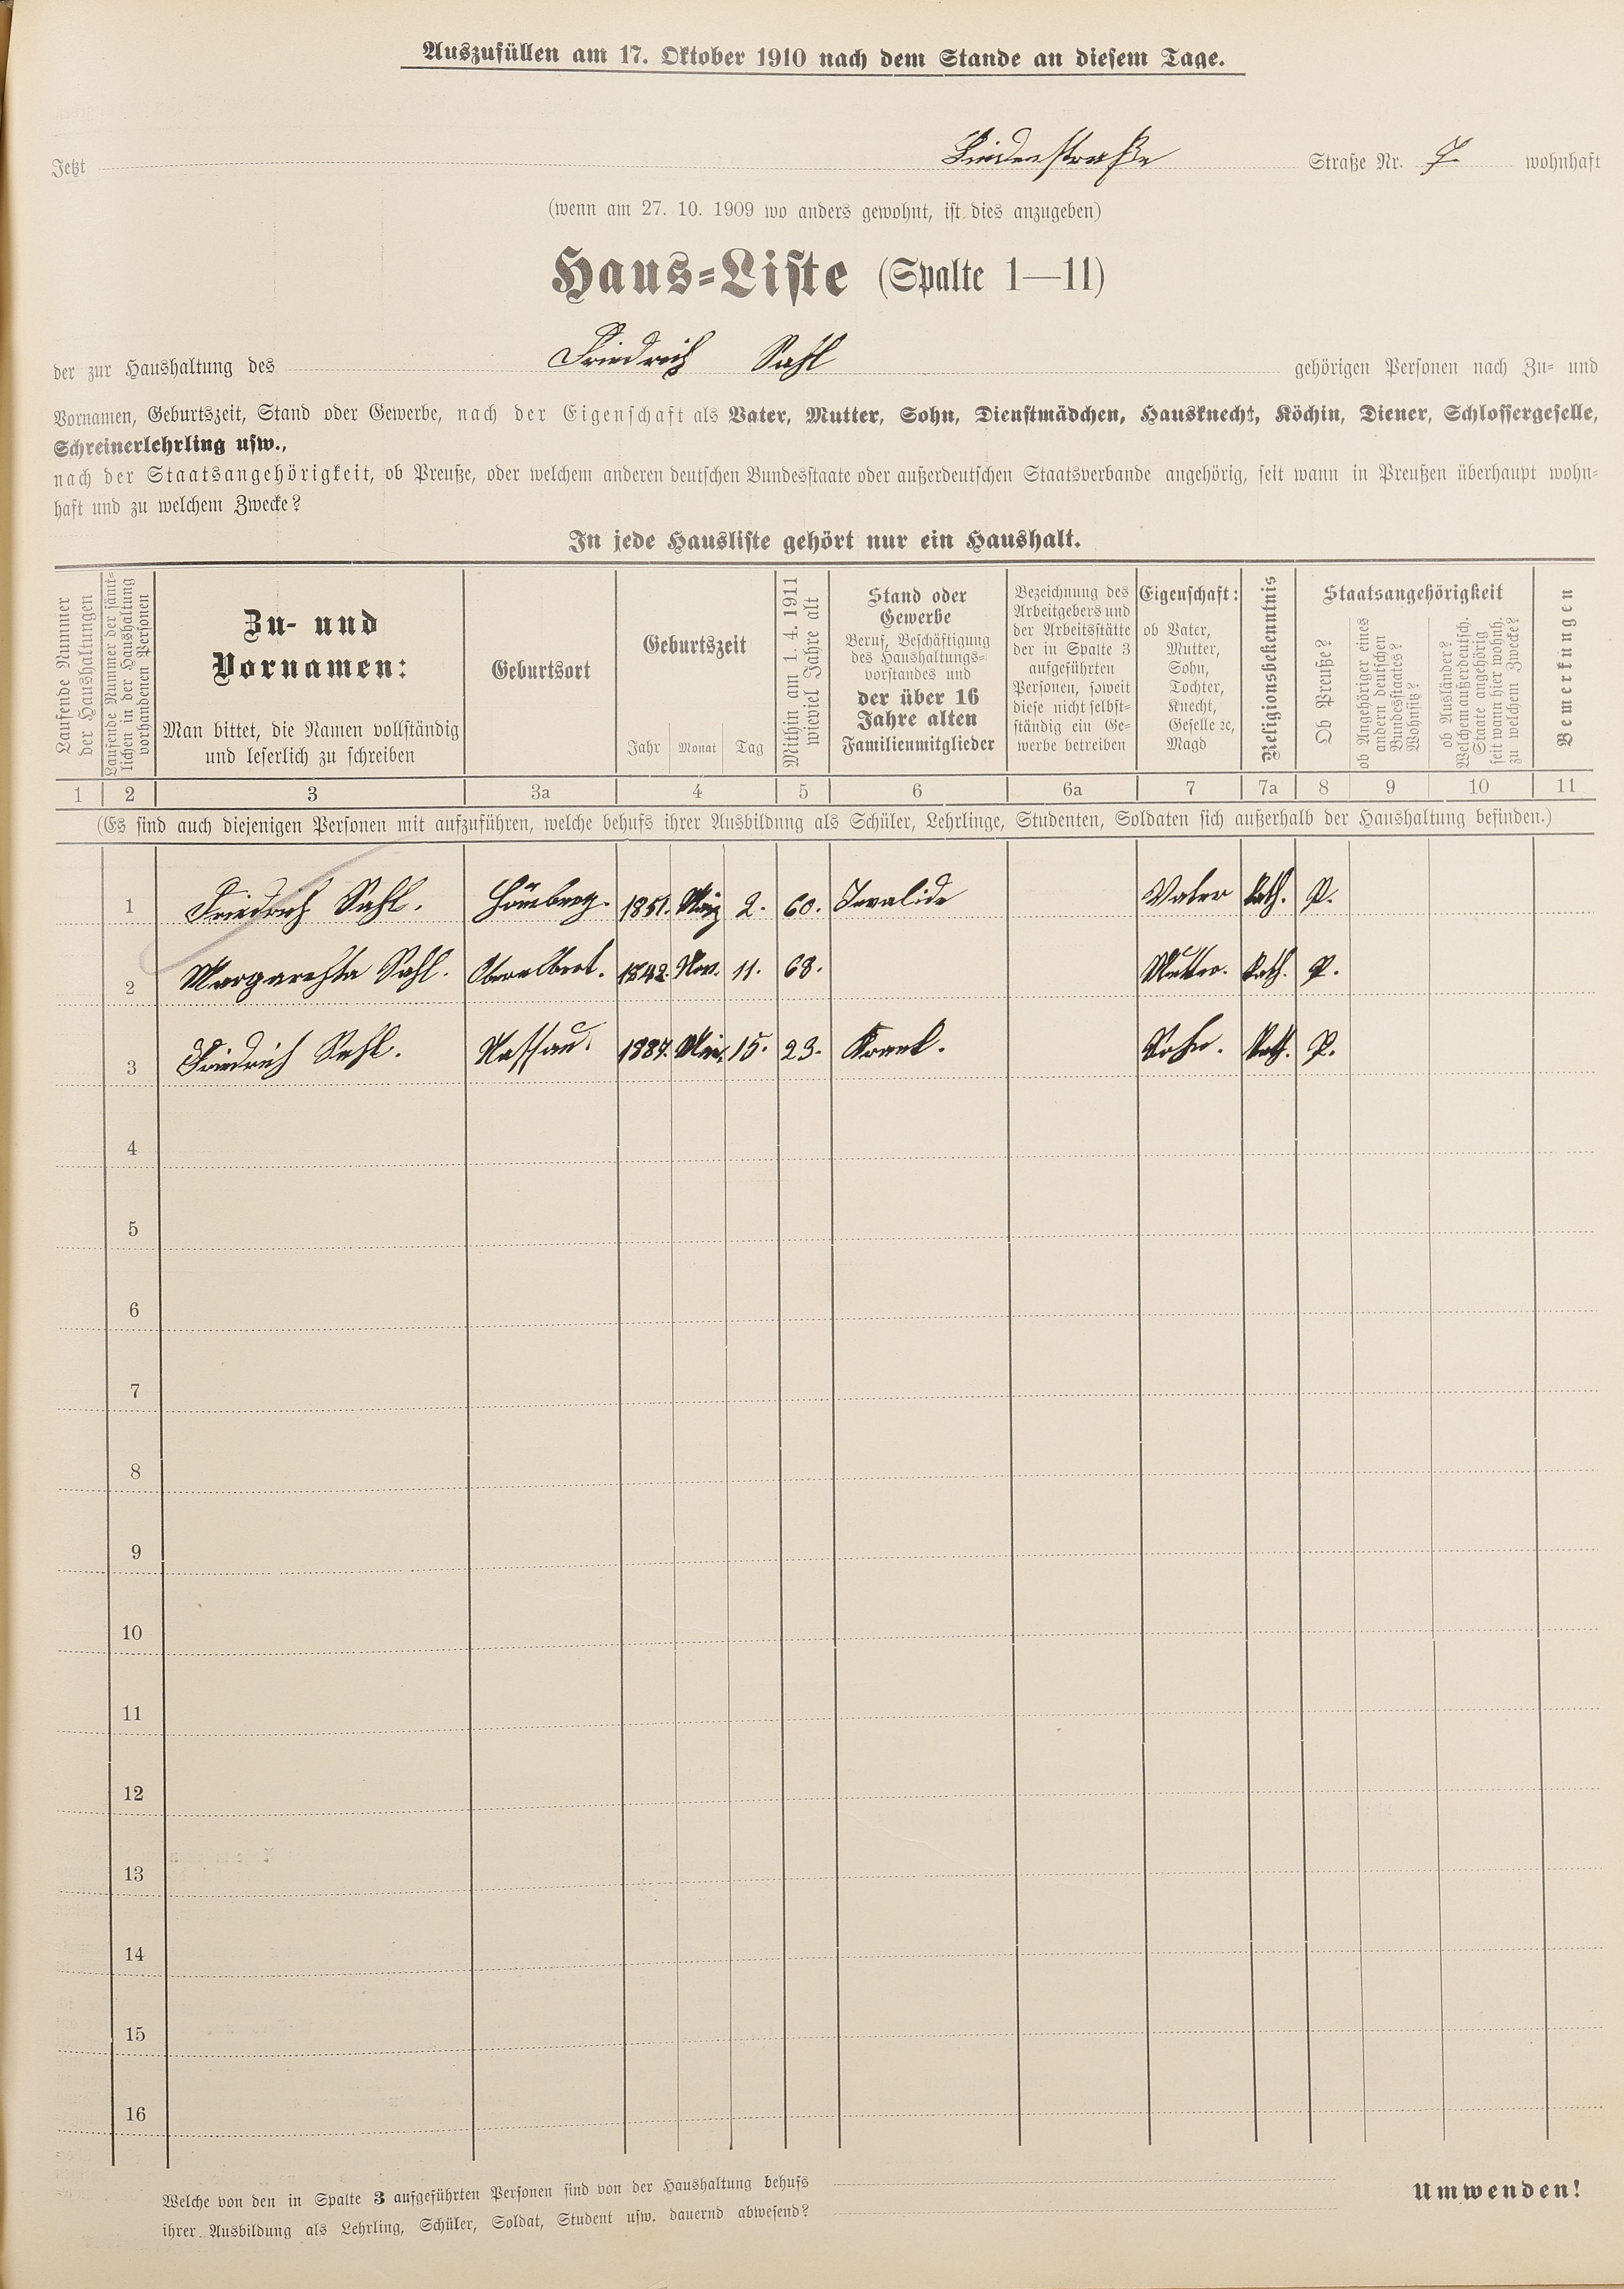 Auszufüllen am 17. Oktober 1910 nach dem Stande an diesem Tage.
Jetzt Lindenstraße Straße Nr. 7. wohnhaft
(wenn am 27. 10. 1909 wo anders gewohnt, ist dies anzugeben)
Haus-Liste (Spalte 1—11)
der zur Haushaltung des Friedrich Sahl gehörigen Personen nach Zu- und
Vornamen, Geburtszeit, Stand oder Gewerbe, nach der Eigenschaft als Vater, Mutter, Sohn, Dienstmädchen, Hausknecht, Köchin, Diener, Schlossergeselle,
Schreinerlehrling usw.,
nach der Staatsangehörigkeit, ob Preuße, oder welchem anderen deutschen Bundesstaate oder außerdeutschen Staatsverbande angehörig, seit wann in Preußen überhaupt wohn-
haft und zu welchem Zwecke?
In jede Hausliste gehört nur ein Haushalt.
Laufende Nummer
der Haushaltungen
Laufende Nummer der sämt-
lichen in der Haushaltung
vorhandenen Personen
Zu- und
Vornamen:
Man bittet, die Namen vollständig
und leserlich zu schreiben
Geburtsort
Geburtszeit
Jahr Monat Tag
Mithin am 1. 4. 1911
wieviel Jahre alt
Stand oder
Gewerbe
Beruf, Beschäftigung
des Haushaltungs-
vorstandes und
der über 16
Jahre alten
Familienmitglieder
Bezeichnung des
Arbeitgebers und
der Arbeitsstätte
der in Spalte 3
aufgeführten
Personen, soweit
diese nicht selbst-
ständig ein Ge-
werbe betreiben
Eigenschaft:
ob Vater,
Mutter,
Sohn,
Tochter,
Knecht,
Geselle ꝛc,
Magd
Religionsbekenntnis
Staatsangehörigkeit
Ob Preuße?
ob Angehöriger eines
andern deutschen
Bundesstaates?
Wohnsitz?
ob Ausländer?
Welchem außerdeutsch.
Staate angehörig
seit wann hier wohnh.
zu welchem Zwecke?
Bemerkungen
1 2 3 3a 4 5 6 6a 7 7a 8 9 10 11
(Es sind auch diejenigen Personen mit aufzuführen, welche behufs ihrer Ausbildung als Schüler, Lehrlinge, Studenten, Soldaten sich außerhalb der Haushaltung befinden.)
1 Friedrich Sahl. Hömberg. 1851. März 2. 60. Invalide Vater Kath. P.
2 Margarehta Sahl. 1842. Nov. 11. 68. Mutter. Kath. P.
3 Friedrich Sahl. Nassau. 1887. 15. 23. Krank. Sohn. Kath. P.
4
5
6
7
8
9
10
11
12
13
14
15
16
Welche von den in Spalte 3 aufgeführten Personen sind von der Haushaltung behufs
ihrer Ausbildung als Lehrling, Schüler, Soldat, Student usw. dauernd abwesend?
Umwenden!